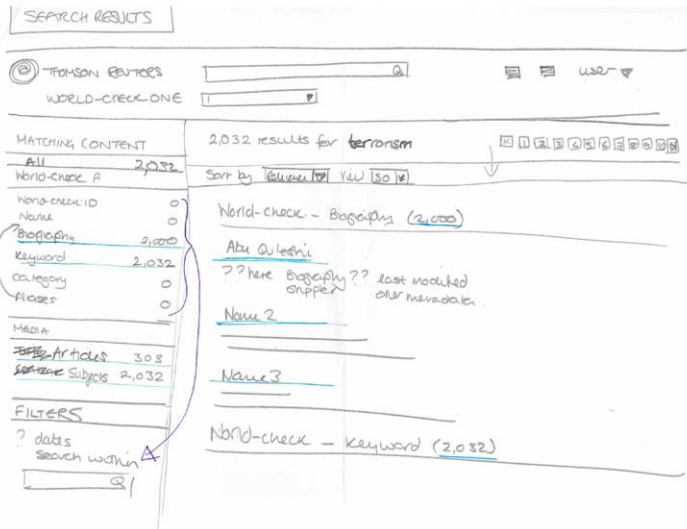 SEARCH RESULTS
THOMSON REUTERS
user
WORLD-CHECK ONE
MATCHING CONTENT
All 2,032
World-Check
World-check ID 0
Name 0
Biography 2,000
Keyword 2,032
category 0
Aliases 0
MEDIA
Articles 303
Subjects 2,032
FILTERS
? dates
Search within
2,032 results for terrorism
1 2 3
Sort by Relevance View 50
World-check - Biography (2,000)
Abu
?? here Biography ?? last modified
snippet other metadata
Name 2
Name 3
World-check - Keyword (2,032)